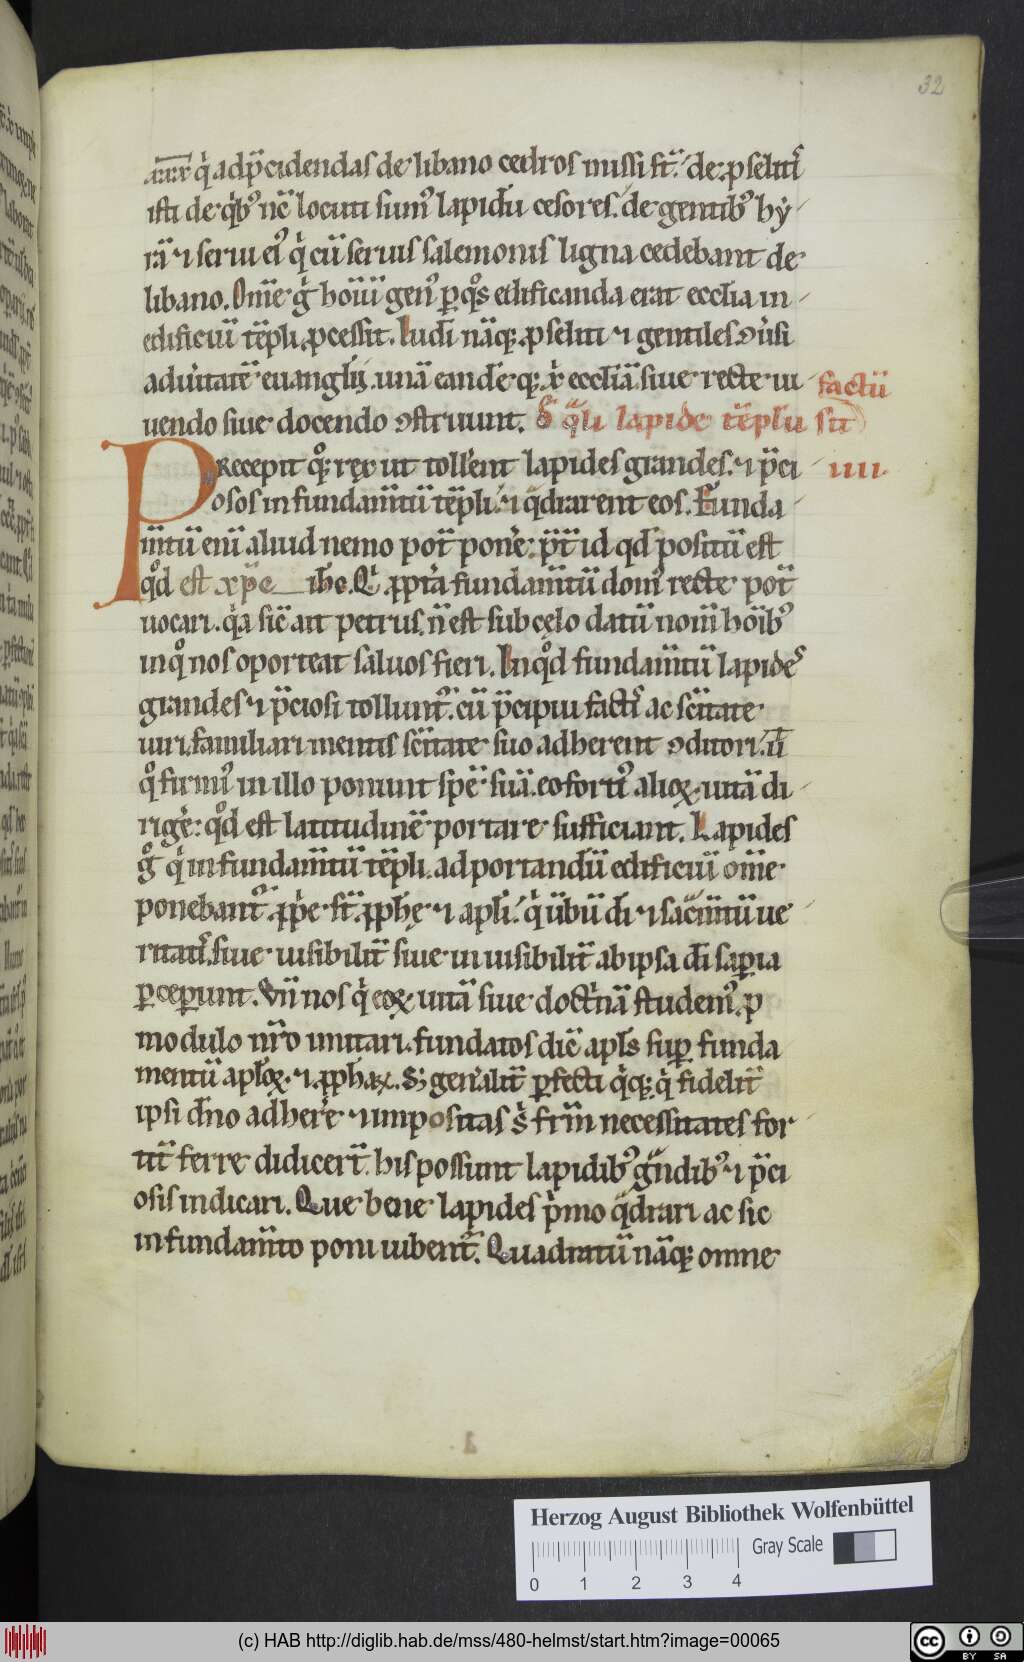 32
xxx q̇ ad p̄cidendas de libano cedros missi st̄. de pseliti᷒
isti de q̇bꝰ nc̄ locuti sumꝰ lapidū cesores. de gentibꝰ hẏ
rā ⁊ serui eiꝰ q̇ cū seruis salemonis ligna cedebant de
libano. Om̄e g̊ hoı̄ū genꝰ ꝑ qͦs edificanda erat ecclīa in
edificiū tēpli ꝓcessit. Iudı̄ nāq; pseliti ⁊ gentiles ꝯuͥsi
ad uͥitatē euanglíj. unā eandēq; x̄ı̇ ecclīā siue recte ui
uendo siue docendo ꝯstruunt. D̄ qͣli lapide tēplū factū sit
PRecepit q̊; rex ut tollerent lapides grandes. ⁊ p̄ci
IIII.
osos in fundam̄tū tēpli. ⁊ qͣdrarent eos. Funda
m̄tū enī aliud nemo pot̄ pone᷒. p̄t̄ id qd̄ positū est
qͦd est xp̄c ihc̄. Qi ꝓpt̄a fundam̄tū domꝰ recte pot̄
uocari. qͥa sic̄ ait petrus. n̄ est sub celo datū nom̄ hoı̄ibꝰ
in qͦ nos oporteat saluos fieri. In qͦd fundam̄tū lapides
grandes ⁊ p̄ciosi tolluntꝰ. cū p̄cipui factis ac sc̄itate
uiri. familiari mentis sc̄itate suo adherent ꝯditori. ū
qͦ firmiꝰ in illo ponunt spē suā. eo fortiꝰ alioꝝ uitā di
rige᷒. qͦd est latitudinē portare sufficiant. Lapides
g̊ q̇ in fundam̄tū tēpli. ad portandū edificiū om̄e
ponebantꝰ. ꝓp̄e st̄ ꝓphe ⁊ apl̄i. q̇ ūbū dı̄ ⁊ sac̄m̄tū ue
ritatis. siue uisibilit̄ siue inuisibilit̄ ab ipsa dı̄ sapīa
ꝑceꝑunt. Vn̄ nos q̇ eoꝝ uitā siue doct̄nā studemꝰ. ꝓ
modulo nr̄o imitari. fundatos dic̄ apl̄s suꝑ funda
mentū apl̄oꝝ ⁊ ꝓphaꝝ. S; gen̄alit̄ ꝑfecti q̇q; q̇ fidelit̄
ipsi dn̄o adhere᷒ ⁊ impositas s̊ fr̄m necessitates for
tit̄ ferre didicer̄t. his possunt lapidibꝰ gͣndibꝰ ⁊ p̄ci
osis indicari. Que bene lapides pͥmo qͣdrari ac sic
in fundam̄to poni iubentꝰ. Quadratū nāq; omne
Herzog August Bibliothek Wolfenbüttel
Gray Scale
0 1 2 3 4
(c) HAB http://diglib.hab.de/mss/480-helmst/start.htm?image=00065
cc BY SA